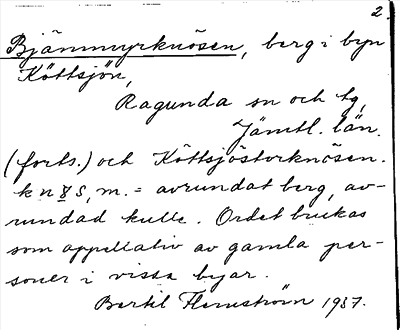 2.
Bjännmyrknösen, berg i byn
Köttsjön,
Ragunda sn och tg,
Jämtl. län.
(forts.) och Köttsjöstorknösen.
m. = avrundat berg, av-
rundad kulle. Ordet brukas
som appellativ av gamla per-
soner i vissa byar.
Bertil Flemström 1937.